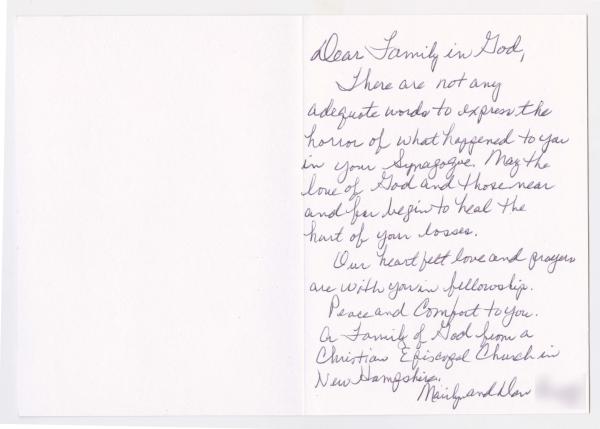 Dear Family in God,
There are not any
adequate words to express the
horror of what happened to you
in your Synagogue. May the
love of God and those near
and far begin to heal the
hurt of your losses.
Our heart felt love and prayers
are with you in fellowship.
Peace and Comfort to you.
A Family of God from a
Christian Episcopal Church in
New Hampshire.
and